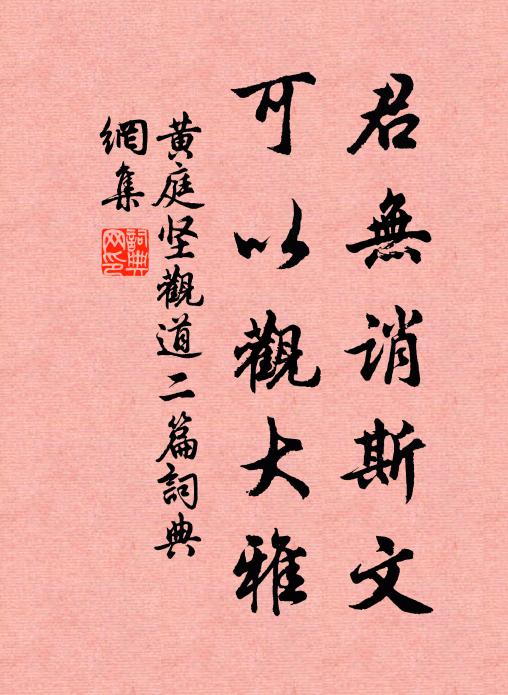 君無誚斯文
可以觀大雅
黄庭坚觀道二篇詞典
網集
詞典網印